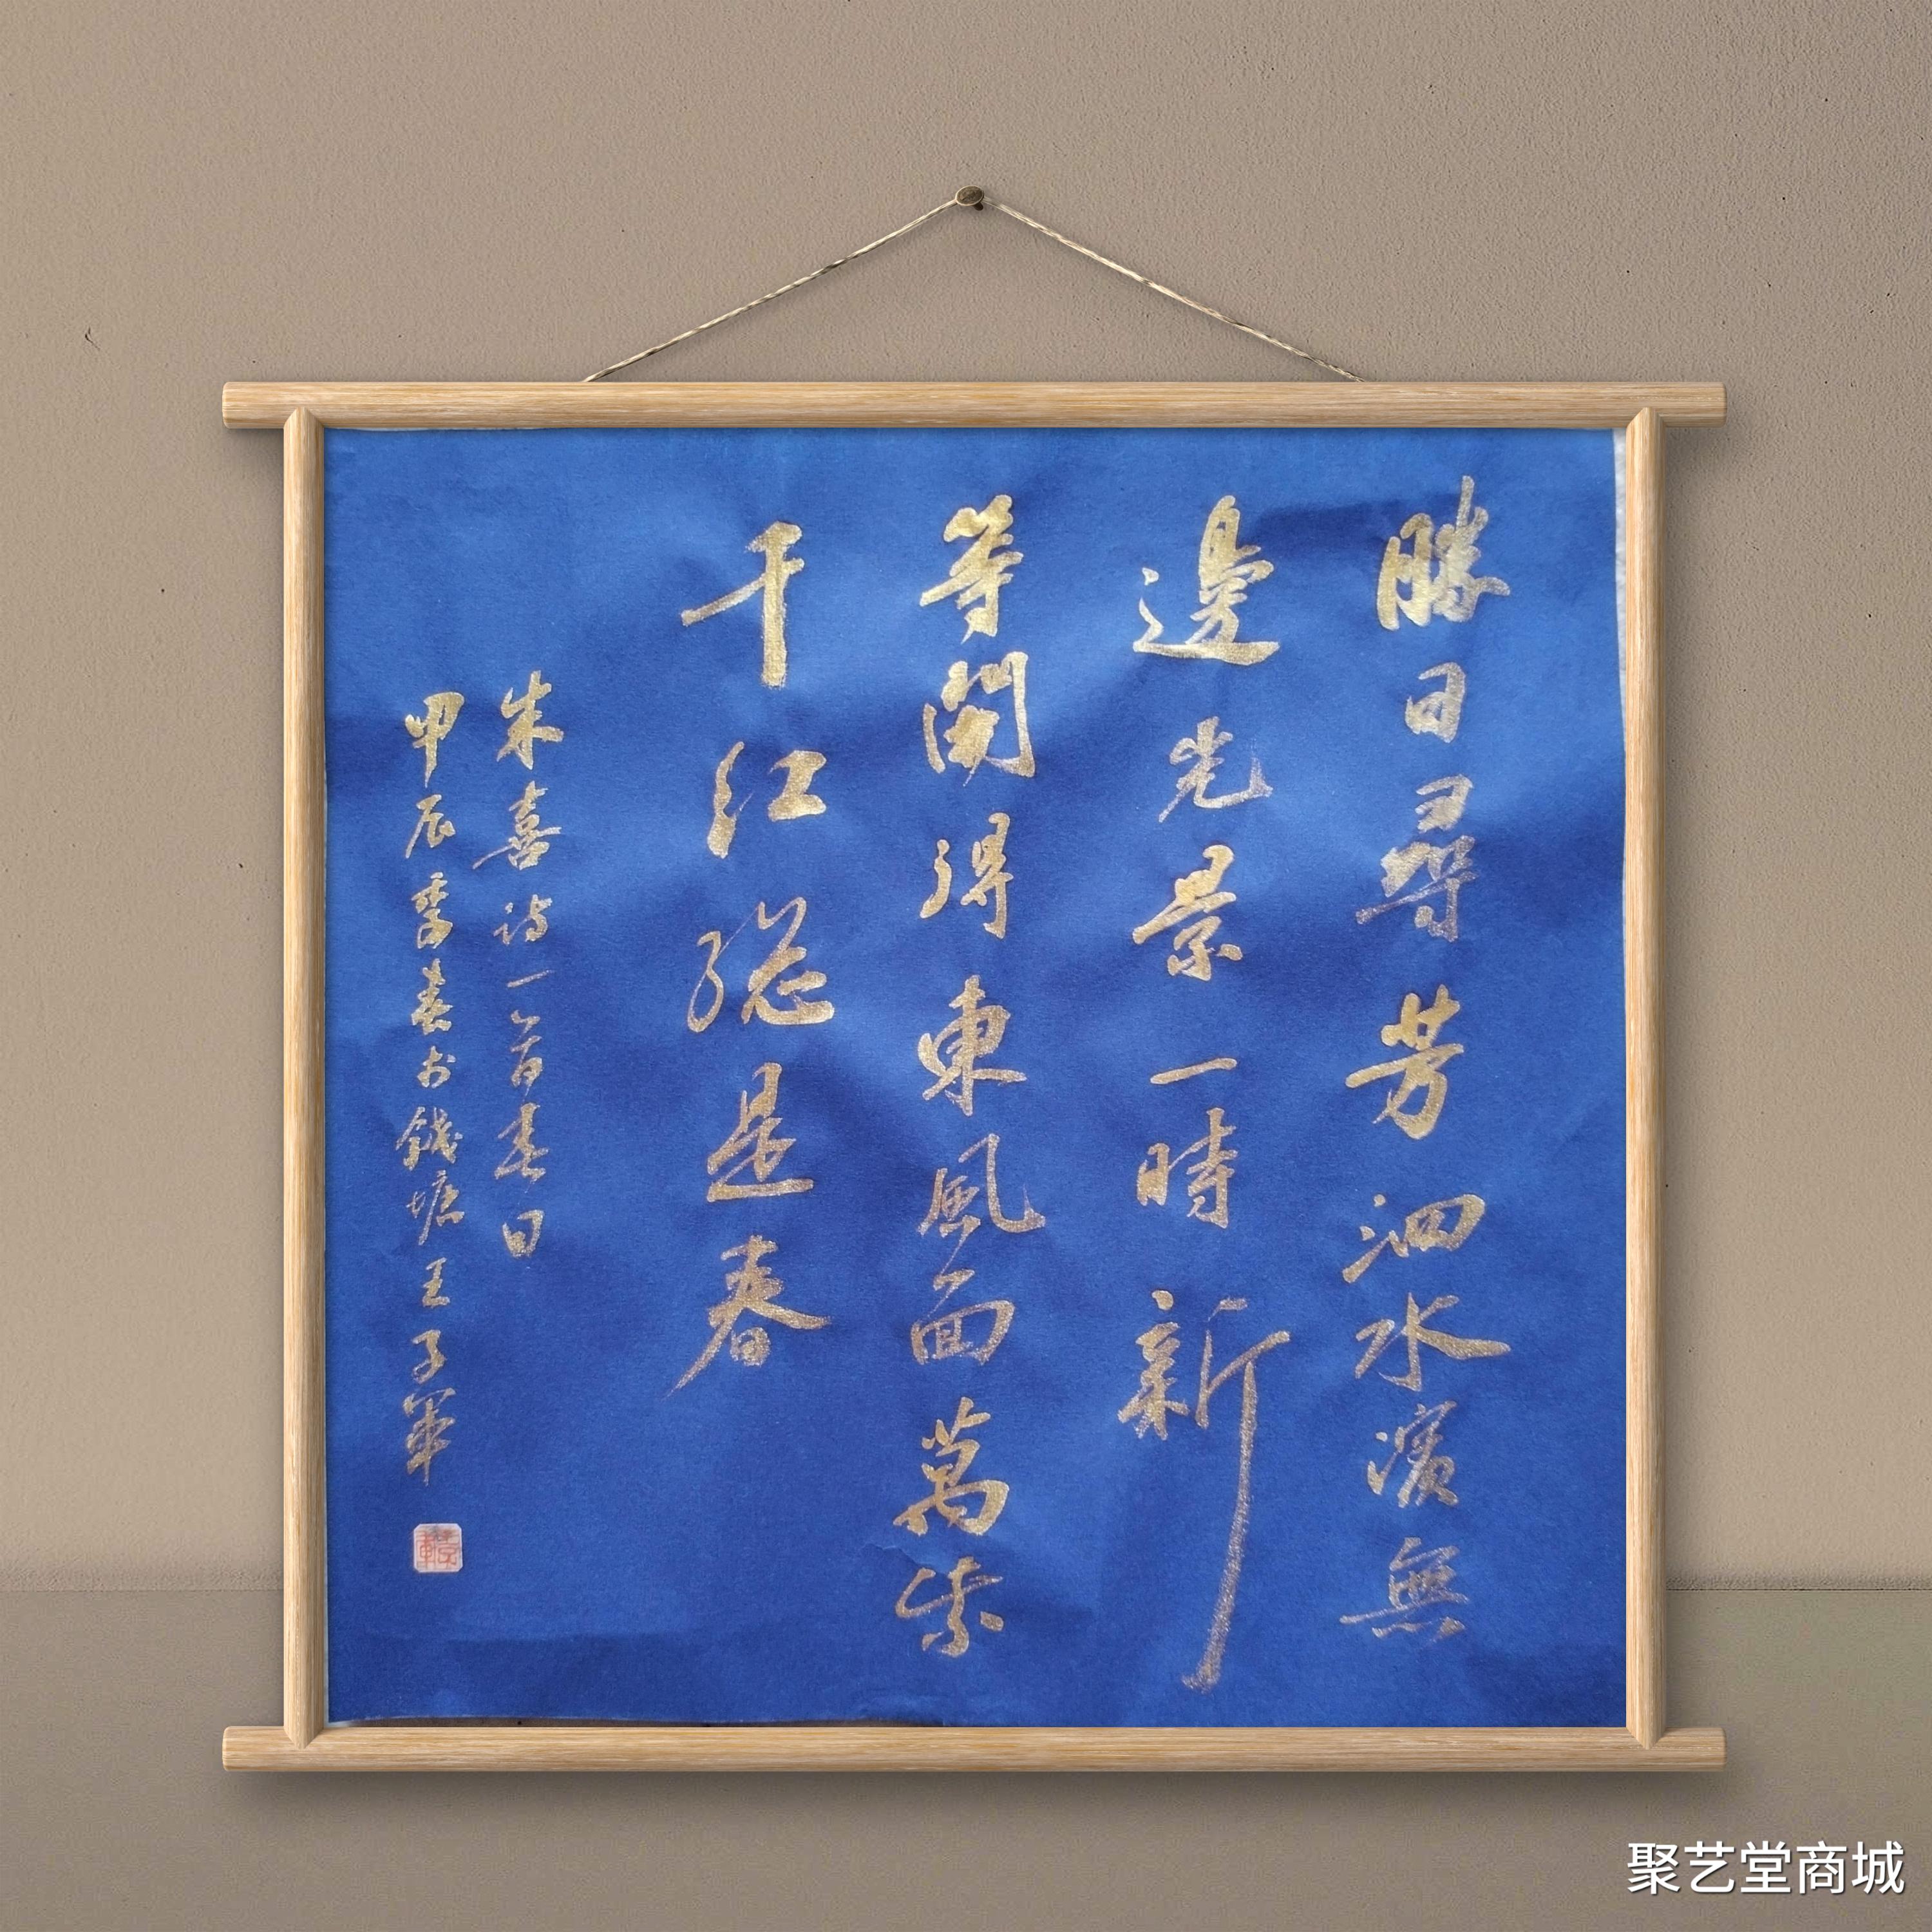 勝日尋芳泗水濱無
邊光景一時新
等閑得東風面萬紫
千红総是春
朱喜诗一首春日
甲辰季春於錢塘王子軍
聚艺堂商城